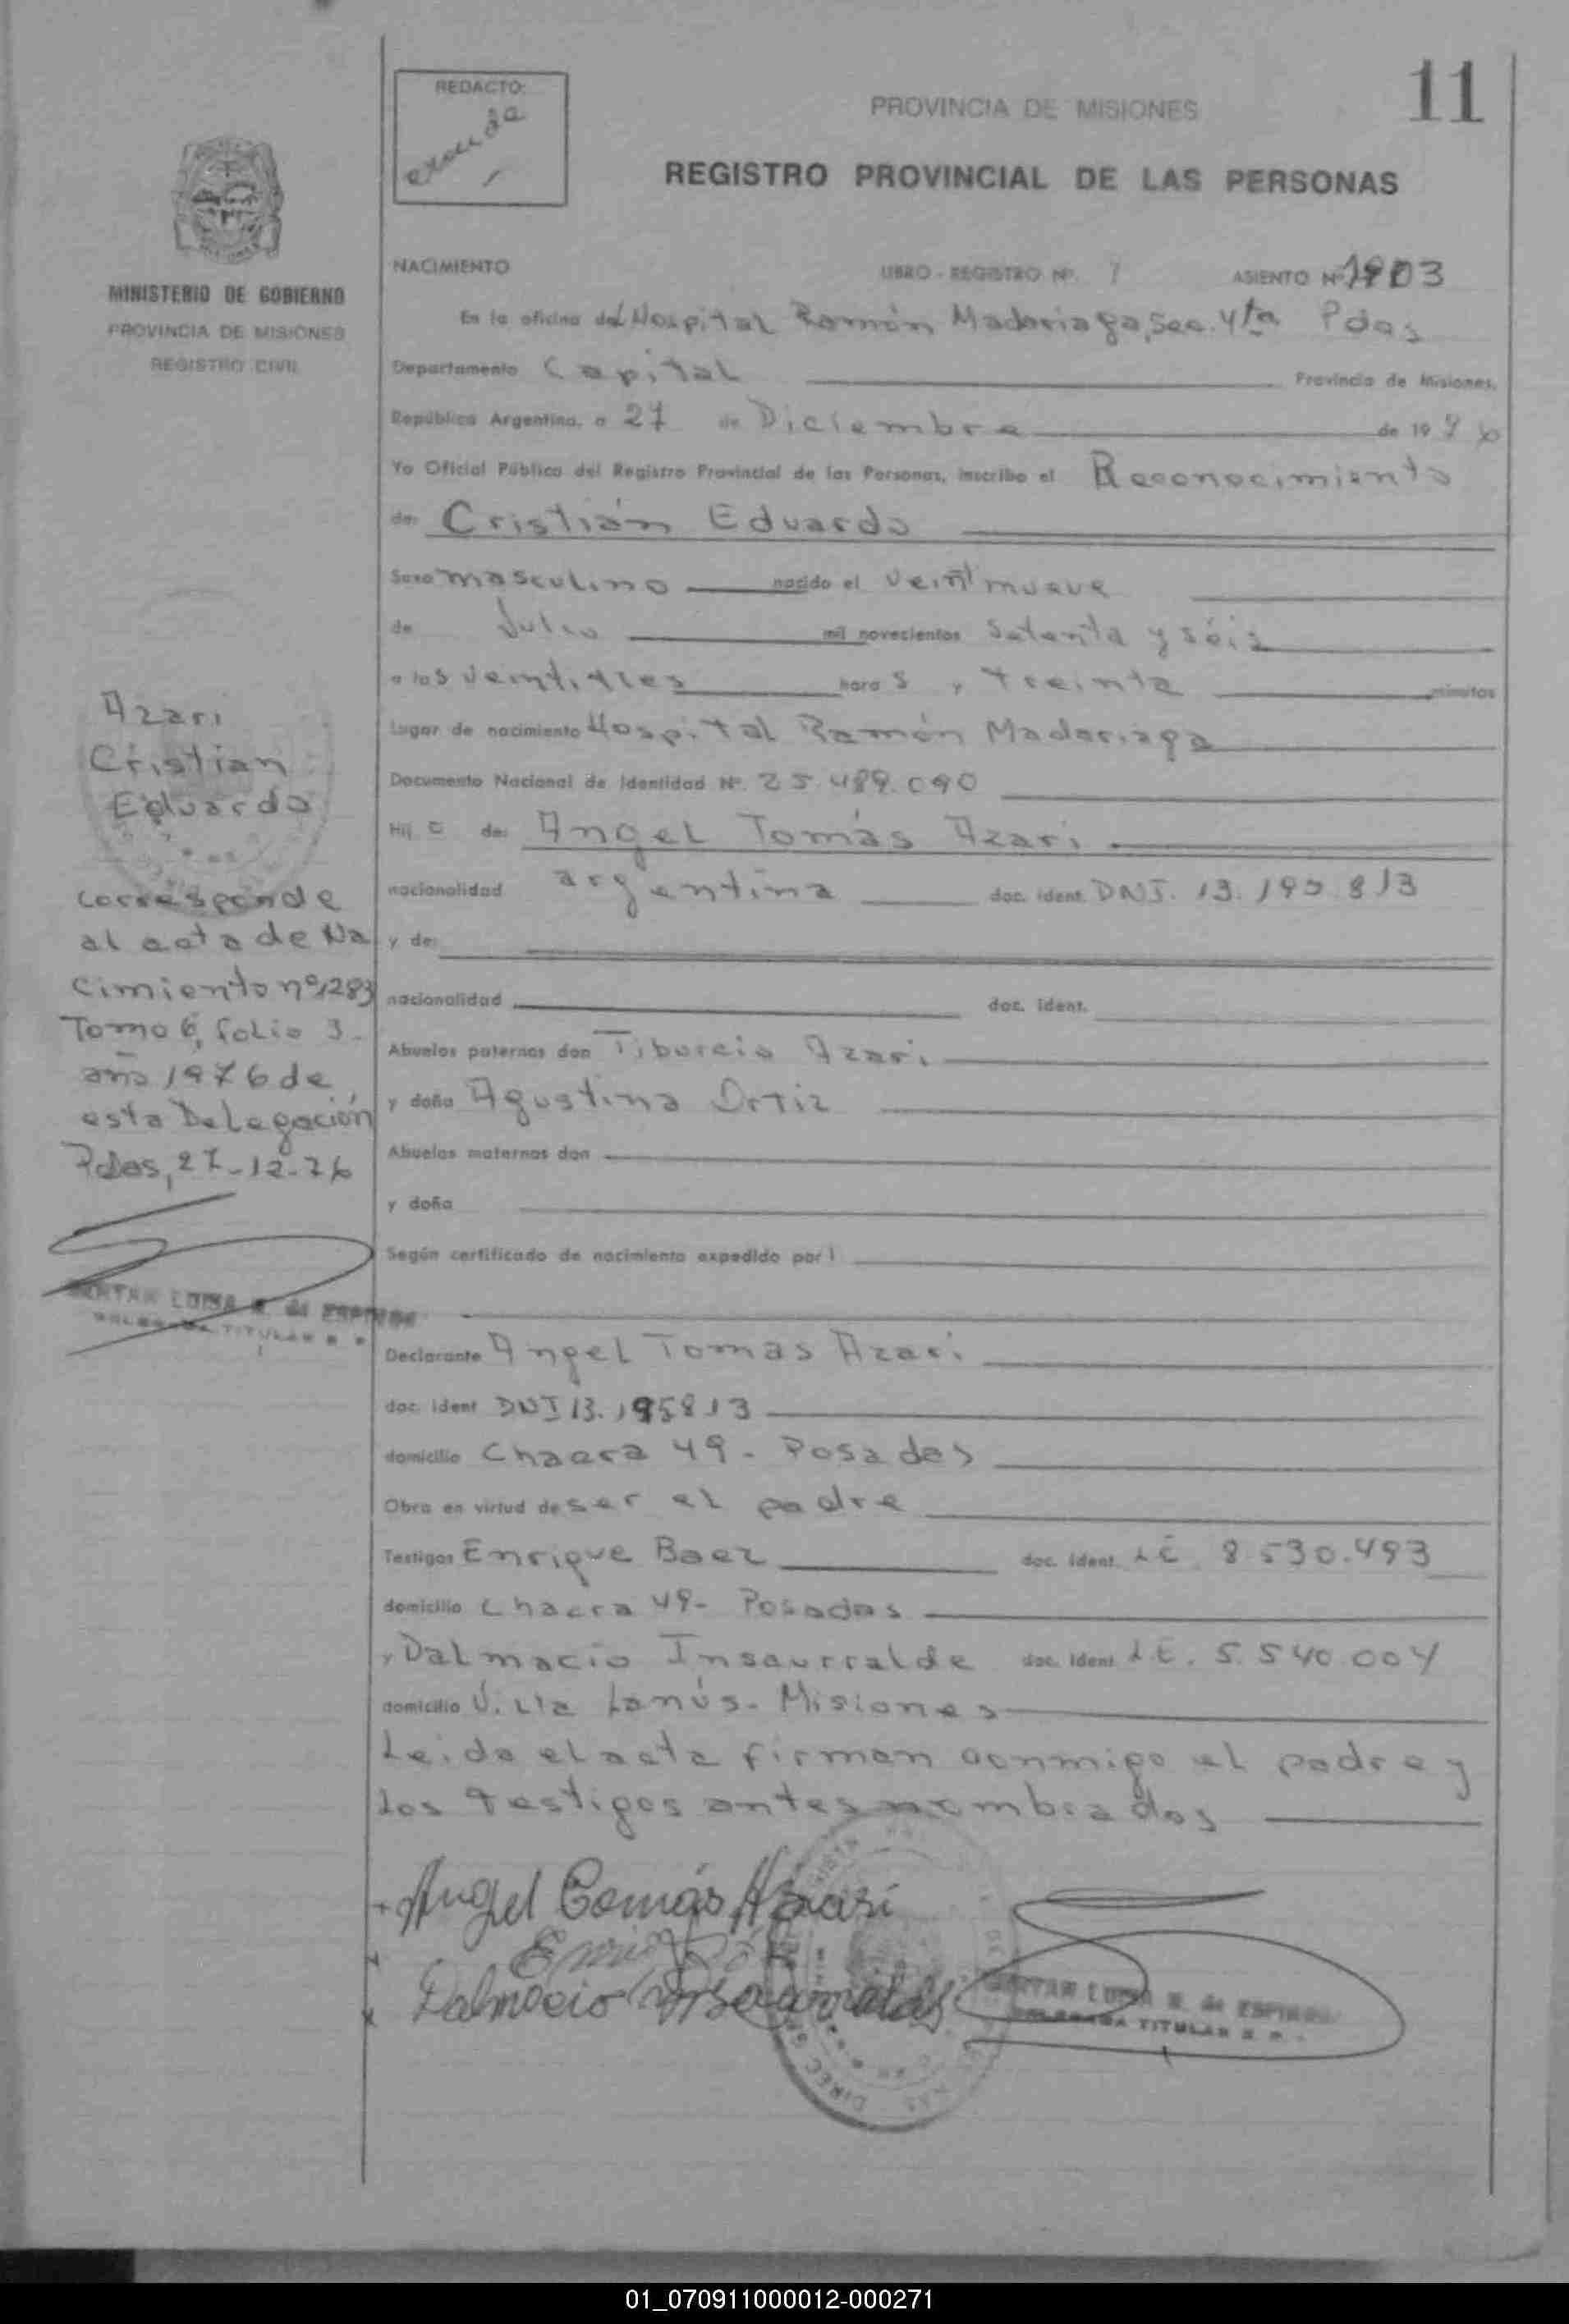 11
REDACTO:
PROVINCIA DE MISIONES
REGISTRO PROVINCIAL DE LAS PERSONAS
MINISTERIO DE GOBIERNO
PROVINCIA DE MISIONES
REGISTRO CIVIL
NACIMIENTO LIBRO - REGISTRO Nº. 7 ASIENTO Nº 1903
En la oficina del Hospital Ramón Madariaga, Sec. 4ta Pdas
Departamento Capital Provincia de Misiones,
República Argentina, a 27 de Diciembre de 1976
Yo Oficial Público del Registro Provincial de las Personas, inscribo el Reconocimiento
de: Cristián Eduardo
Sexo masculino nacido el veintinueve
de Julio mil novecientos setenta y séis
a las veintitres horas y treinta minutos
Lugar de nacimiento Hospital Ramón Madariaga
Documento Nacional de Identidad Nº. 25.489.090
Hijo de: Angel Tomás Azari
nacionalidad argentina doc. ident. DNI. 13.195.813
y de:
nacionalidad doc. ident.
Abuelos paternos don Tiburcio Azari
y doña Agustina Ortiz
Abuelos maternos don
y doña
Según certificado de nacimiento expedido por
Declarante Angel Tomas Azari
doc. ident DNI 13.195813
domicilio Chacra 49 - Posadas
Obra en virtud de ser el padre
Testigos Enrique Baez doc. ident. LE 8.530.493
domicilio Chacra 49 - Posadas
y Dalmacio Insaurralde doc. ident L.E. 5.540.004
domicilio Villa Lanús - Misiones
Leida el acta firman conmigo el padre y
los testigos antes nombrados
Angel Tomás Azari
Dalmacio Insaurralde
LUISA N. de
TITULAR
Azari
Cristian
Eduardo
corresponde
al acta de Na
cimiento nº 1283
Tomo 6, folio 3-
año 1976 de
esta Delegación
Pdas, 27-12-76
LUISA N. de
TITULAR
01_070911000012-000271